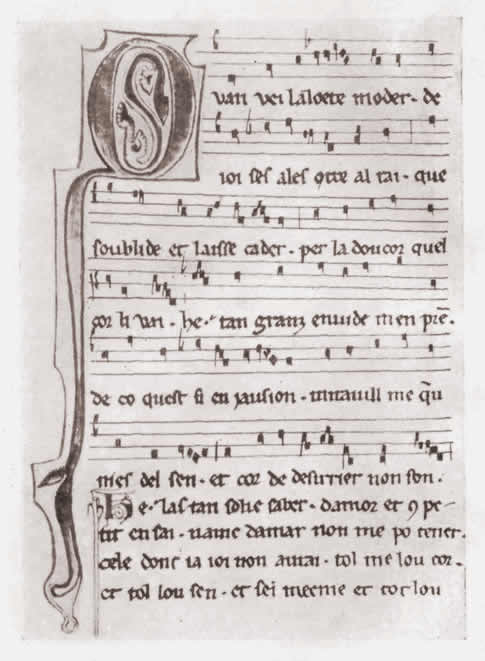 Quan vei laloete moder · de
ioi ses ales ꝯtre al rai · que
soublide et laisse cader · per la doucor quel
cor li vai · he · tan granz enuide men pre̅ ·
de co quest si en iausion · mirauill me q̅u
nies del sen · et cor de desirrier non fon ·
He · las tan soue saber · damor et ꝯ pe-
tit en sai · name damar non me po tener ·
cele donc ia ioi non aurai · tol me lou cor ·
et tol lou sen · et sei meeme et tot lou